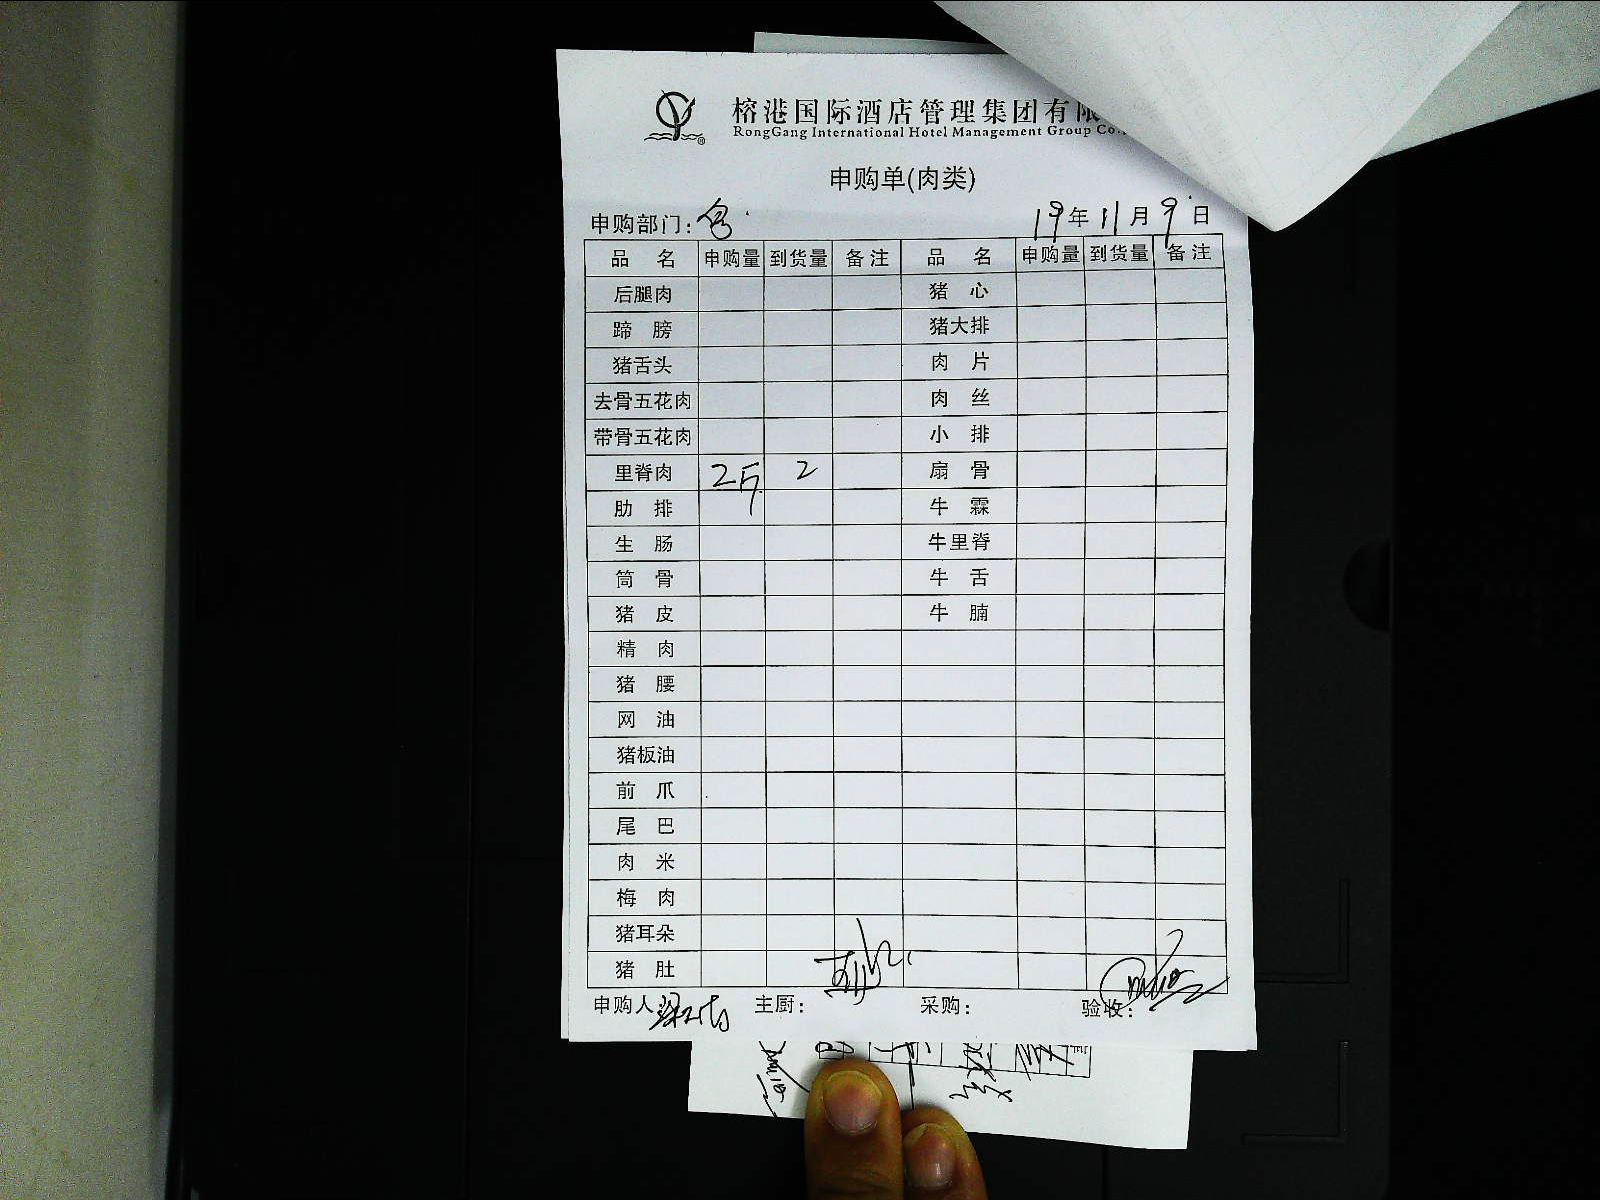 榕港国际酒店管理集团有限
RongGang International Hotel Management Group Co.,
申购单(肉类)
申购部门: 19年11月9日
品 名 申购量 到货量 备注 品 名 申购量 到货量 备注
后腿肉 猪 心
蹄 膀 猪大排
猪舌头 肉 片
去骨五花肉 肉 丝
带骨五花肉 小 排
里脊肉 2斤 2 扇 骨
肋 排 牛 霖
生 肠 牛里脊
筒 骨 牛 舌
猪 皮 牛 腩
精 肉
猪 腰
网 油
猪板油
前 爪
尾 巴
肉 米
梅 肉
猪耳朵
猪 肚
申购人 主厨: 采购: 验收: